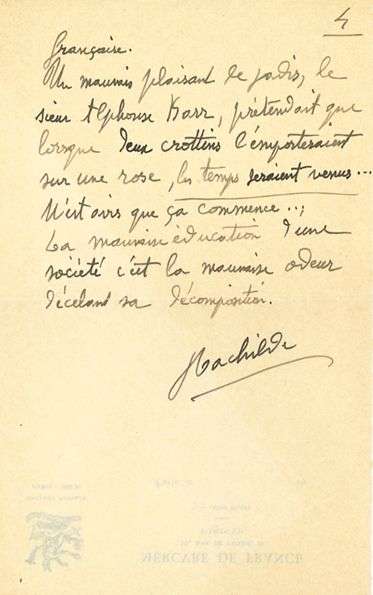 4
française.
Un mauvais plaisant de jadis, le
sieur Alphonse Karr, prétendait que
lorsque deux crottins l'emporteraient
sur une rose, les temps seraient venus...
M'est avis que ça commence...;
La mauvaise éducation d'une
société c'est la mauvaise odeur
décelant sa décomposition.
Rachilde
MERCVRE DE FRANCE